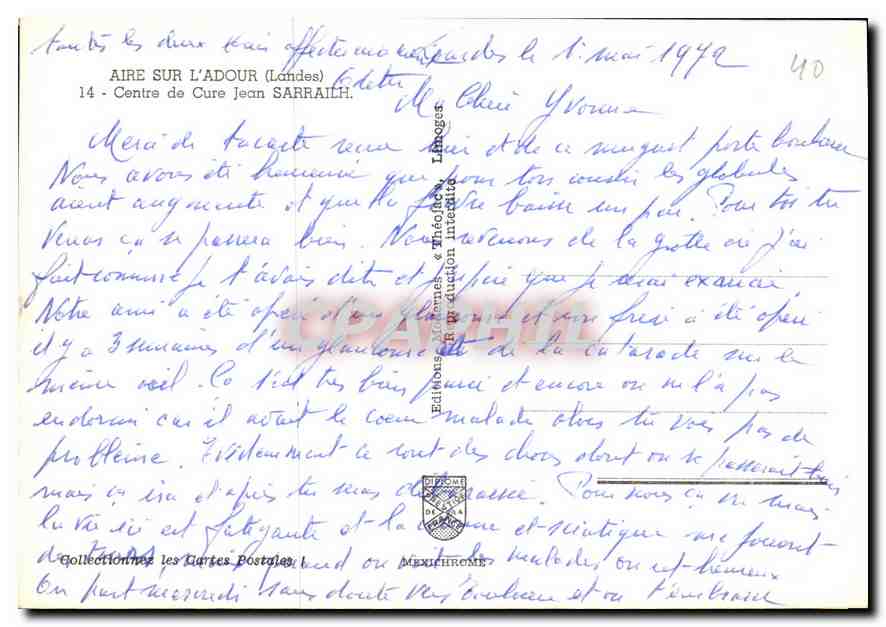 toutes les deux bien affectueusement Lourdes le 1. mai 1972
40
AIRE SUR L'ADOUR (Landes)
Odette
14 - Centre de Cure Jean SARRAILH.
Ma Chère Yvonne
Merci de ta carte reçue hier et de ce muguet porte bonheur
Nous avons été heureux que pour ton cousin les globules
aient augmenté et que la fièvre baisse un peu. Pour toi tu
verras ça se passera bien. Nous revenons de la grotte où j'ai
fait comme je t'avais dit et j'espère que je serai exaucée
Notre ami a été opéré d'un glaucome et mon frère a été opéré
il y a 3 semaines d'un glaucome et de la cataracte sur le
même oeil. Ça s'est très bien passé et encore on ne l'a pas
endormi car il avait le coeur malade alors tu vois pas de
problème. Evidemment ce sont des choses dont on se passerait bien
mais ça ira et après tu seras débarrassée. Pour nous ça va mais
la vie ici est fatigante et la sciatique me
de mais quand on voit les malades on est heureux
On part mercredi sans doute vers et on t'embrasse
Editions Modernes « Théojac », Limoges
Reproduction interdite
DIPLOME
PRESTIGE
DE LA
FRANCE
Collectionnez les Cartes Postales !
MEXICHROME
CPARHIL